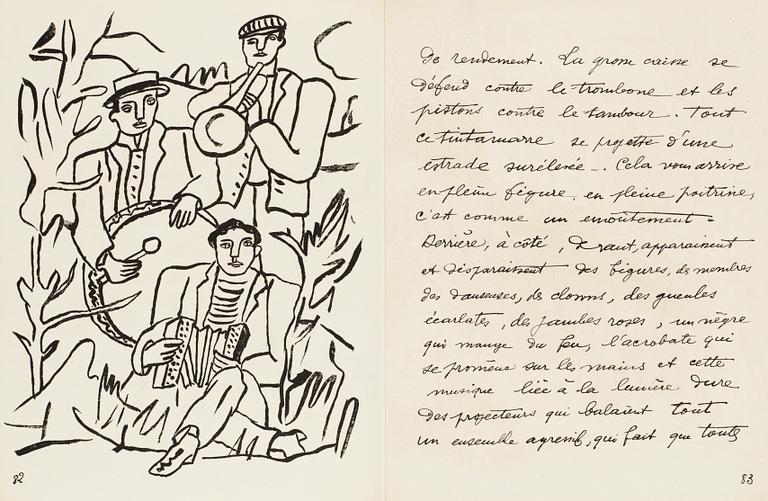 82
de rendement. La grosse caisse se
défend contre le trombone et les
pistons contre le tambour. Tout
ce tintamarre se projette d'une
estrade surélevée _. Cela vous arrive
en pleine figure, en pleine poitrine,
c'est comme un envoûtement.
Derrière, à côté, devant, apparaissent
et disparaissent des figures, des membres
des danseuses, des clowns, des gueules
écarlates, des jambes roses, un nègre
qui mange du feu, l'acrobate qui
se promène sur les mains et cette
musique liée à la lumière dure
des projecteurs qui balaient tout
un ensemble agressif, qui fait que toute
83